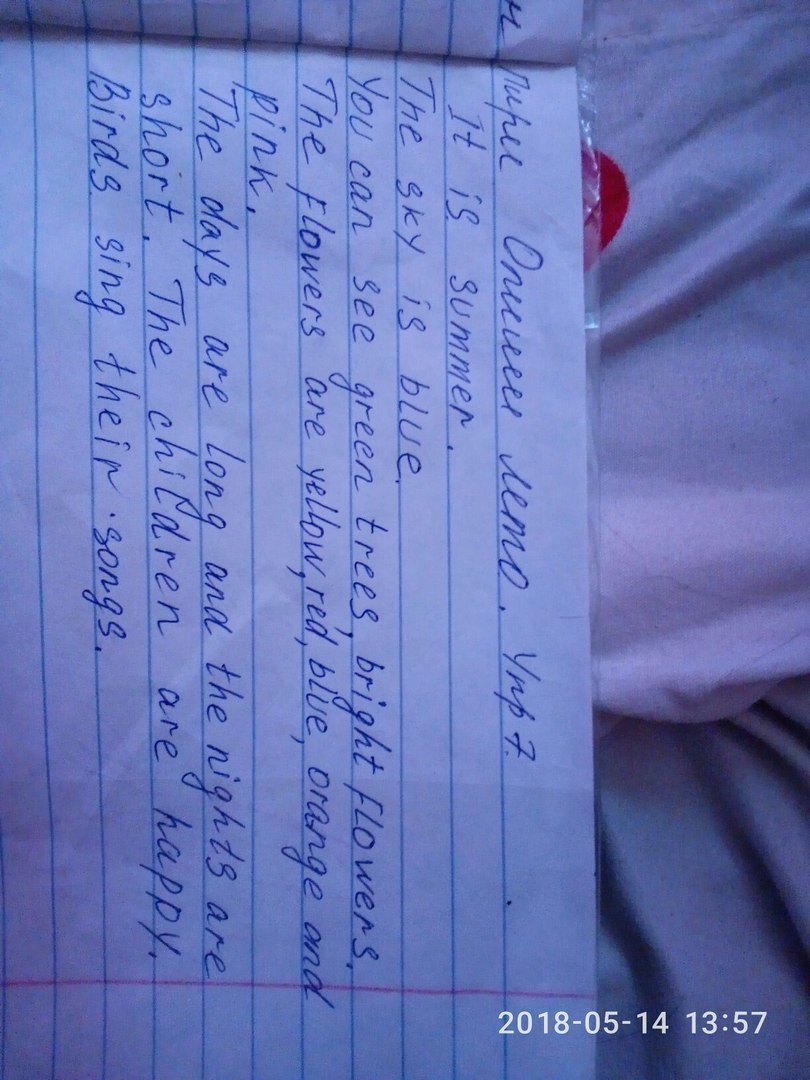 Опиши лето. Упр 7.
It is summer.
The sky is blue.
You can see green trees, bright flowers.
The flowers are yellow, red, blue, orange and
pink.
The days are long and the nights are
short. The children are happy.
Birds sing their songs.
2018-05-14 13:57